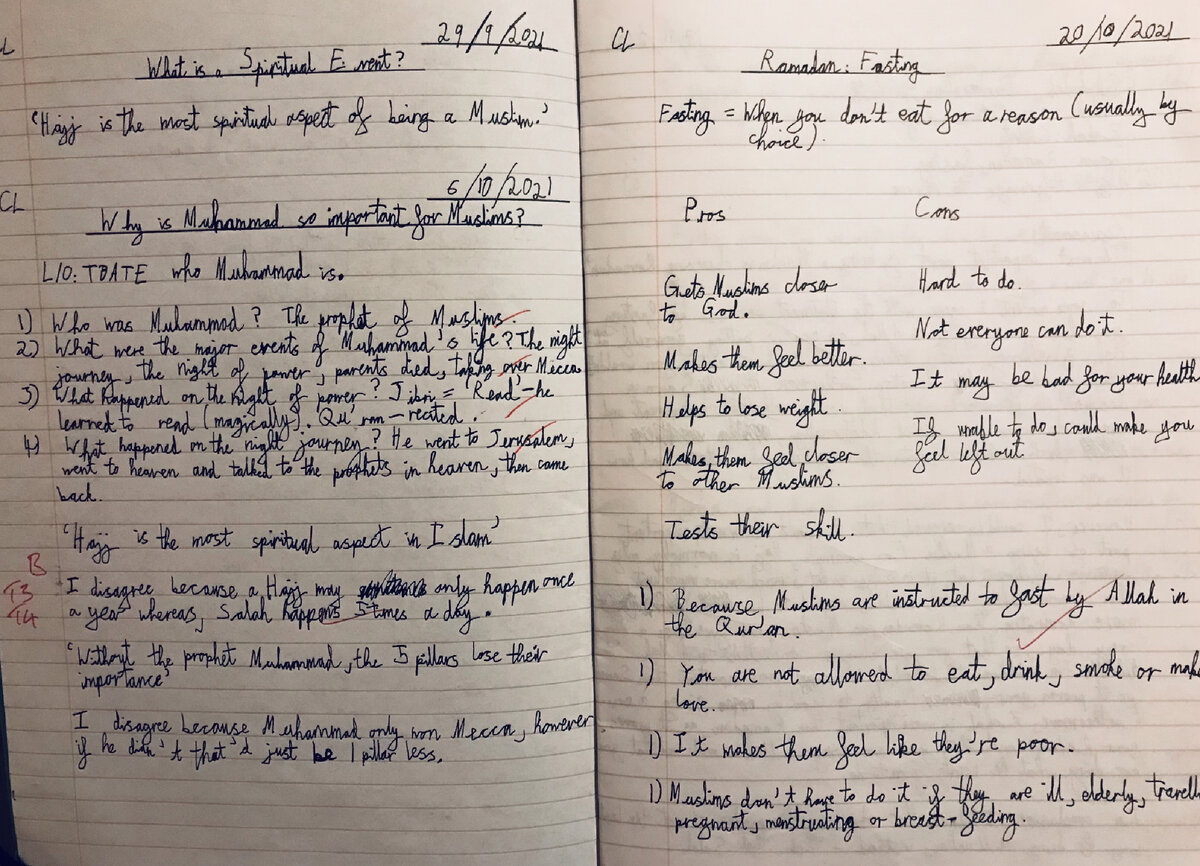 L
29/9/2021
What is a Spiritual Event?
'Hajj is the most spiritual aspect of being a Muslim.'
CL
6/10/2021
Why is Muhammad so important for Muslims?
L/O: TBATE who Muhammad is.
1) Who was Muhammad? The prophet of Muslims.
2) What were the major events of Muhammad's life? The night
journey, the night of power, parents died, taking over Mecca
3) What happened on the night of power? Jibri = 'Read' - he
learned to read (magically). Qu'ran - recited.
4) What happened on the night journey? He went to Jerusalem,
went to heaven and talked to the prophets in heaven, then came
back.
'Hajj is the most spiritual aspect in Islam'
B
T3
T4
I disagree because a Hajj may only happen once
a year whereas, Salah happens 5 times a day.
'Without the prophet Muhammad, the 5 pillars lose their
importance'
I disagree because Muhammad only won Mecca, however
if he didn't that'd just be 1 pillar less.
CL
20/10/2021
Ramadan: Fasting
Fasting = When you don't eat for a reason (usually by
choice).
Pros
Cons
Gets Muslims closer
to God.
Makes them feel better.
Helps to lose weight.
Makes them feel closer
to other Muslims.
Tests their skill.
Hard to do.
Not everyone can do it.
It may be bad for your health
If unable to do, could make you
feel left out
1) Because Muslims are instructed to fast by Allah in
the Qur'an.
1) You are not allowed to eat, drink, smoke or make
love.
1) It makes them feel like they're poor.
1) Muslims don't have to do it if they are ill, elderly, travell
pregnant, menstruating or breast-feeding.